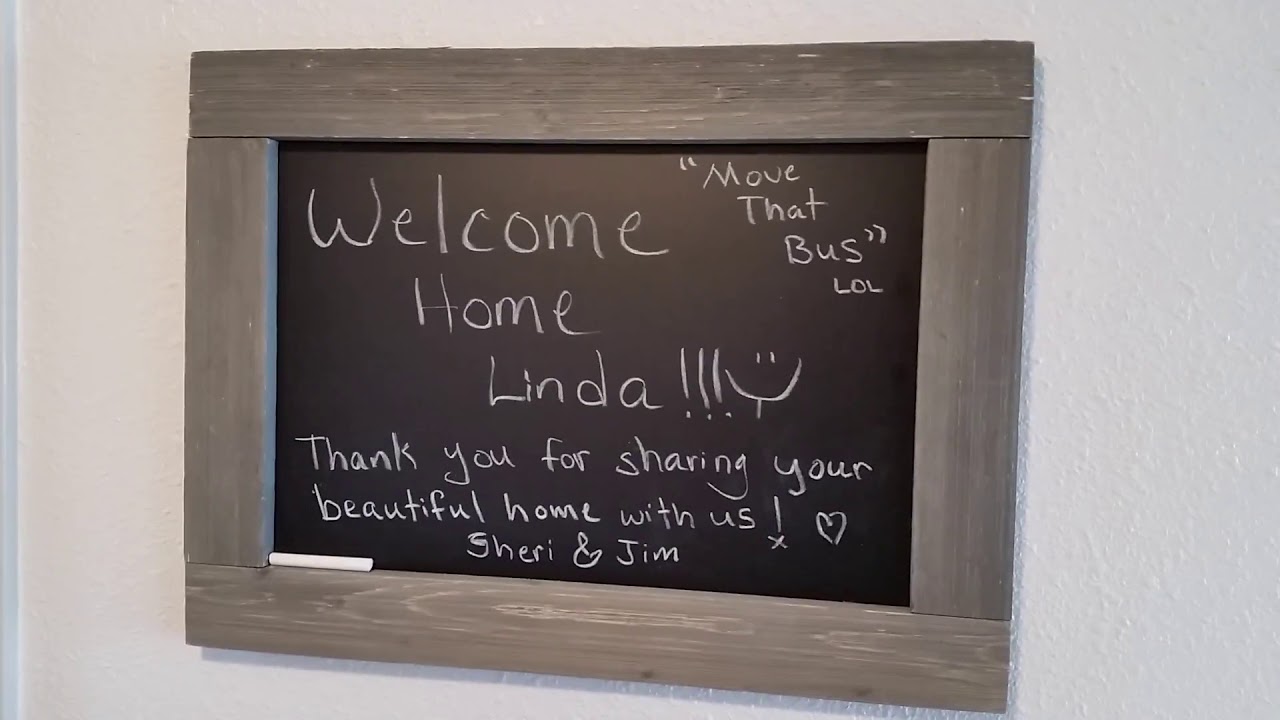 Welcome
Home
Linda!!!
"Move
That
Bus"
LOL
Thank you for sharing your
beautiful home with us! ♡
Sheri & Jim